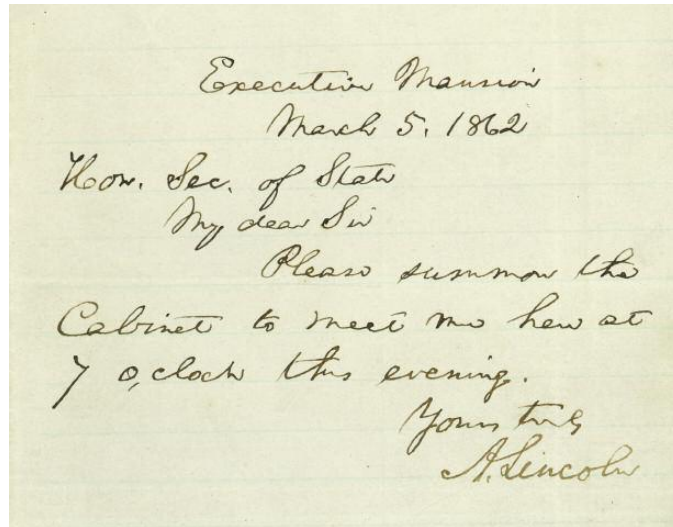 Executive Mansion
March 5. 1862
Hon. Sec. of State
My dear Sir
Please summon the
Cabinet to meet me here at
7 o,clock this evening.
Yours truly
A. Lincoln